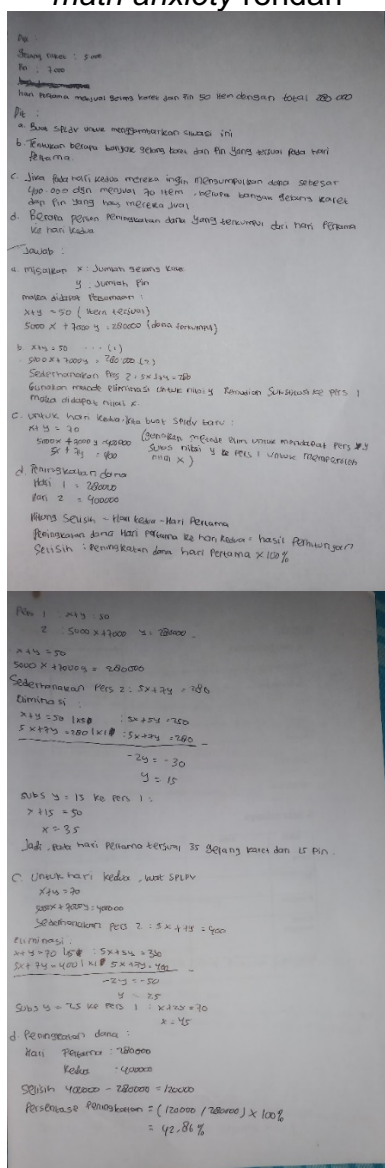 math anxiety rendah
Dik :
gelang karet : 5000
Pin : 7000
hari pertama menjual gelang karet dan pin 50 item dengan total 280 000
Dit :
a. Buat SPLDV untuk menggambarkan situasi ini
b. Tentukan berapa banyak gelang karet dan Pin yang terjual pada hari
Pertama.
c. Jika pada hari kedua mereka ingin mengumpulkan dana sebesar
400.000 dgn menjual 70 item, berapa banyak gelang karet
dan pin yang harus mereka jual
d. Berapa persen Peningkatan dana yang terkumpul dari hari Pertama
ke hari kedua
Jawab :
a. misalkan x : Jumlah gelang karet
y : Jumlah Pin
maka didapat Persamaan :
x+y = 50 (item terjual)
5000 x + 7000 y = 280000 (dana terkumpul)
b. x+y = 50 ... (1)
5000x + 7000y = 280 000 (2)
Sederhanakan Pers 2 : 5x + 7y = 280
Gunakan metode eliminasi untuk nilai y kemudian Substitusi ke pers 1
maka didapat nilai x.
c. untuk hari kedua, kita buat SPLDV baru :
x+y = 70
5000x + 7000y = 400000 (gunakan metode Elim untuk mendapat Pers y
5x + 7y = 400 Subs nilai y ke pers 1 untuk memperoleh
nilai x )
d Peningkatan dana
Hari 1 = 280000
Hari 2 = 400000
Hitung Selisih - Hari kedua - Hari Pertama
Peningkatan dana Hari Pertama ke hari kedua = hasil Perhitungan
Selisih : Peningkatan dana hari Pertama x 100%
Pers 1 : x+y : 50
2 : 5000 x + 7000 y = 280000.
x+y = 50
5000 x + 7000y = 280000
Sederhanakan Pers 2 : 5x + 7y = 280
Eliminasi :
x+y = 50 |x5| : 5x+5y = 250
5x+7y = 280 |x1| : 5x+7y = 280
-2y = -30
y = 15
subs y = 15 ke Pers 1 :
x + 15 = 50
x = 35
Jadi, Pada hari Pertama terjual 35 gelang karet dan 15 Pin.
C. Untuk hari kedua, buat SPLDV
x+y = 70
5000x + 7000y = 400000
Sederhanakan Pers 2 : 5x + 7y = 400
Eliminasi.
x+y = 70 |x5| : 5x+5y = 350
5x + 7y = 400 |x1| 5x+7y = 400
-2y = -50
y = 25
Subs y = 25 ke Pers 1 : x+25 = 70
x = 45
d Peningkatan dana :
Hari Pertama : 280000
Kedua : 400000
Selisih 400000 - 280000 = 120000
Persentase Peningkatan = (120000 / 280000) x 100%
= 42,86 %